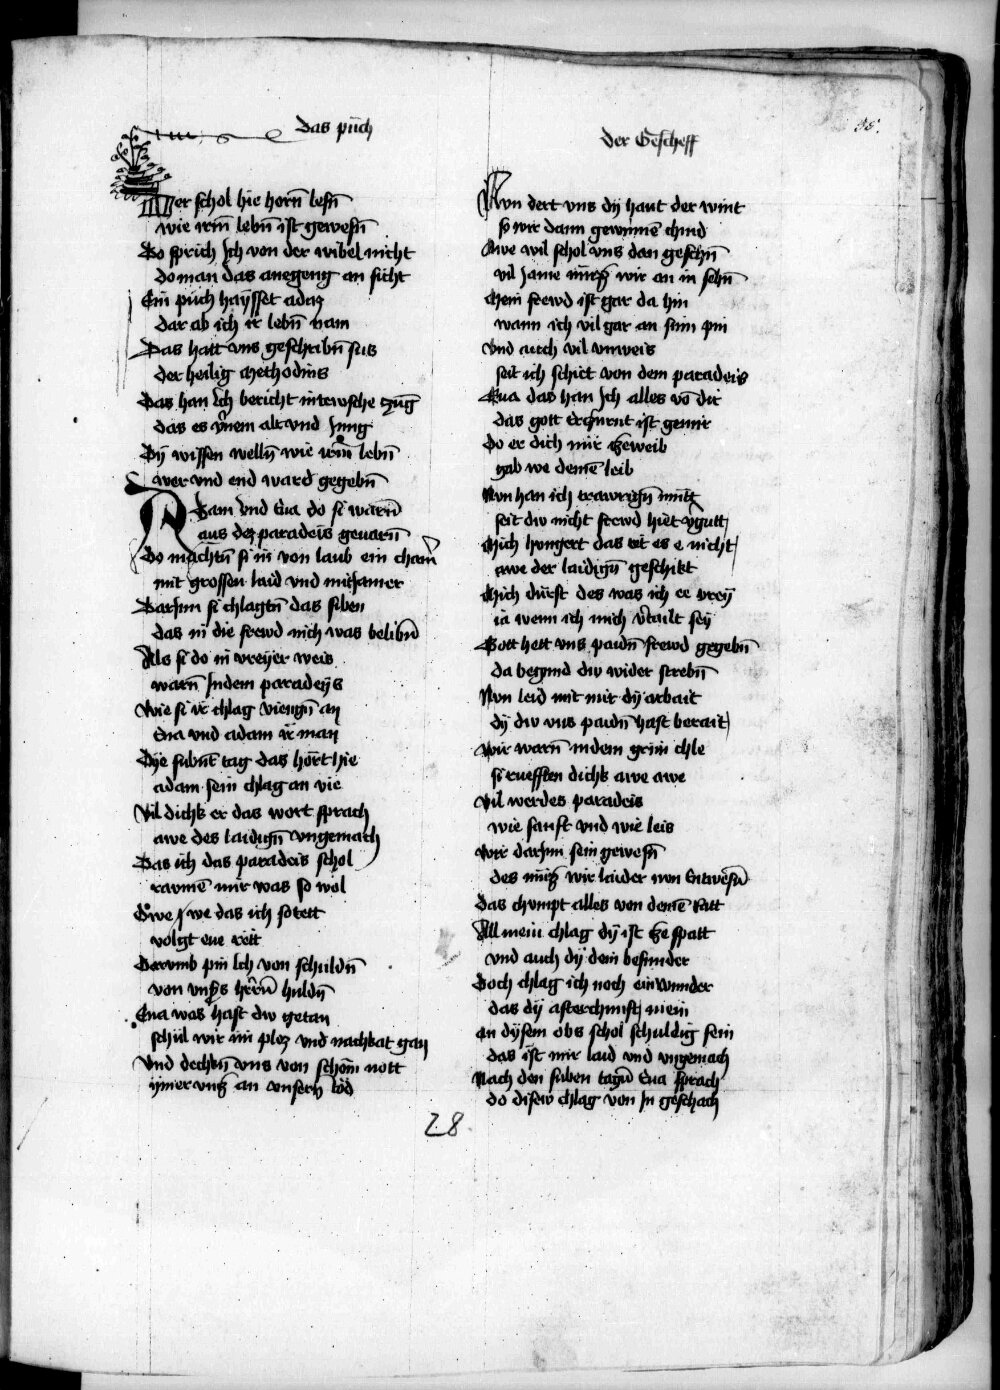 das püch
der Gescheff
Wer schol hie horn̄ lesn̄
wie irm̄ lebn̄ ist gewesn̄
So sprich Ich von der wibel nicht
do man das anegeng an sicht
Ein püch haysset adam
dar ab ich ir lebn̄ nam
Das hatt vns geschribn̄ sus
der heilig Methodius
Das han Ich bericht in tewsche
das es v̄nem alt vnd Jung
Dÿ wissen welln̄ wie irm̄ lebn̄
wer vnd end ward gegebn̄
Adam vnd Eua do si warn̄
aus dez paradeis geuarn̄
Do machtn̄ si in von laub ein cham̄
mit grossen laid vnd mit Jamer
DarInn si chlagtn̄ das siben
das in die frewd nich was belibn̄
Als si do in vreyer weis
warn̄ Indem paradeÿs
Wie si ir chlag viengn̄ an
Eua vnd adam ir man
Dÿe subn̄t tag das hort hie
adam sein chlag an vie
Vil dichk er das wort sprach
awe des laidign̄ vngemach
Das ich das paradeis schol
rawmē mir was so wol
Owe / we das ich so tett
volgt eue rett
Darumb pin Ich von schuldn̄
von vnsers herrn̄ huldn̄
Eua was hast dw getan
schul wir im plez vnd nachkat gan
Vnd dechkn̄ vns von schom nott
ÿmer vncz an vnsern tod
Nvn dert vns dÿ haut der wint
so wir dann gewinnē chind
Awe wil schol vns dan geschn̄
vil Jamerr müez wir an in sehn̄
Mein frewd ist gar da hin
wann ich vil gar an sinn pin
Vnd auch vil vnweis
seit ich schiet von dem paradeis
Eua das han Ich alles vō dir
das gott Erczurnt ist gen mir
Do er dich mir cze weib
gab we deinē leib
Nvn han ich trawrign̄ mutt
seit dw nicht frewd hiet
Mich hungert das tet es e nicht
awe der laidign̄ geschikt
Mich dürst des was ich ee vreÿ
ia wenn ich mich v̄tailt seÿ
Gott hett vns paidn̄ frewd gegebn̄
da begund dw wider strebn̄
Nvn leid mit mir dÿ arbait
dÿ dw vns paidn̄ hast berait
Wir warn̄ indem grim chle
si ruefften dichk awe awe
Vil werdes paradeis
wie sanft vnd wie leis
Wir darInn sein gewesn̄
des müez wir laider nvn Entwesn̄
Das chvmpt alles von deinē Ratt
All mein chlag dÿ ist cze spatt
vnd auch dÿ dein besunder
Doch chlag ich noch ein wunder
das dÿ afterchunft mein
an dÿsem obs schol schuldig sein
das ist mir laid vnd vngemach
Nach den suben tagn̄ Eua sprach
do disew chlag von In geschach
28